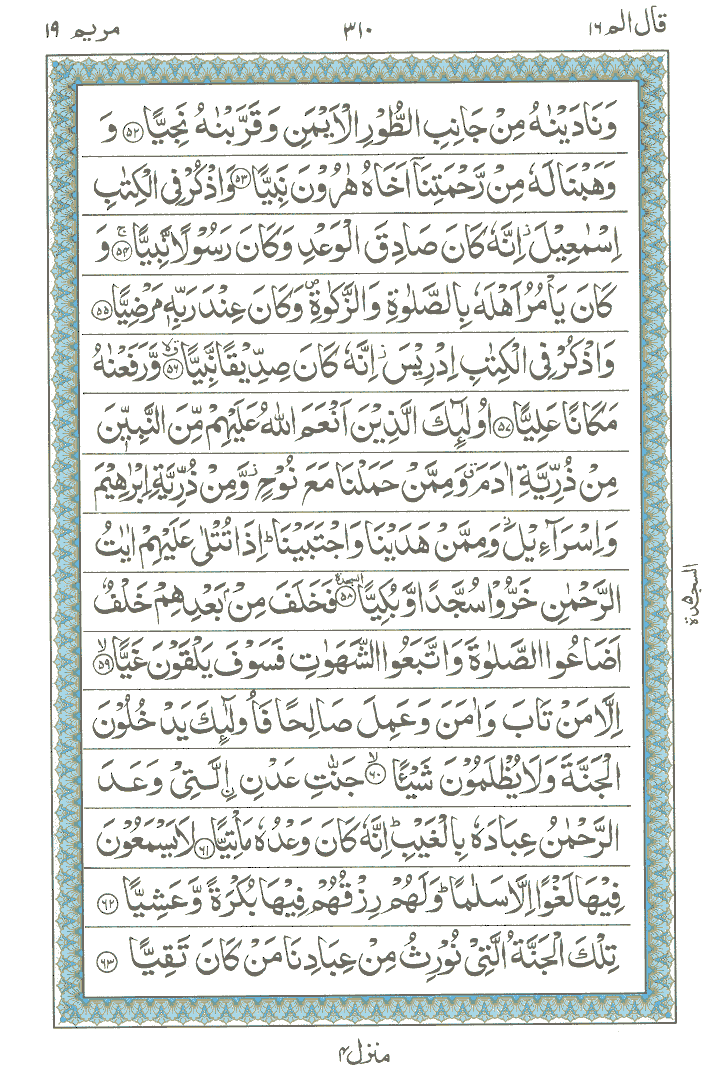 قال الم ١٦
٣١٠
مريم ١٩
وَنَادَيْنٰهُ مِنْ جَانِبِ الطُّوْرِ الْاَيْمَنِ وَقَرَّبْنٰهُ نَجِيًّا ﴿٥٢﴾ وَ
وَهَبْنَا لَهٗ مِنْ رَّحْمَتِنَاۤ اَخَاهُ هٰرُوْنَ نَبِيًّا ﴿٥٣﴾ وَاذْكُرْ فِى الْكِتٰبِ
اِسْمٰعِيْلَ ز اِنَّهٗ كَانَ صَادِقَ الْوَعْدِ وَكَانَ رَسُوْلًا نَّبِيًّا ﴿٥٤﴾ ج وَ
كَانَ يَاْمُرُ اَهْلَهٗ بِالصَّلٰوةِ وَالزَّكٰوةِ وَكَانَ عِنْدَ رَبِّهٖ مَرْضِيًّا ﴿٥٥﴾
وَاذْكُرْ فِى الْكِتٰبِ اِدْرِيْسَ ز اِنَّهٗ كَانَ صِدِّيْقًا نَّبِيًّا ﴿٥٦﴾ وَّرَفَعْنٰهُ
مَكَانًا عَلِيًّا ﴿٥٧﴾ اُولٰٓئِكَ الَّذِيْنَ اَنْعَمَ اللّٰهُ عَلَيْهِمْ مِّنَ النَّبِيّٖنَ
مِنْ ذُرِّيَّةِ اٰدَمَ وَمِمَّنْ حَمَلْنَا مَعَ نُوْحٍ ز وَّمِنْ ذُرِّيَّةِ اِبْرٰهِيْمَ
وَاِسْرَآءِيْلَ ز وَمِمَّنْ هَدَيْنَا وَاجْتَبَيْنَا ط اِذَا تُتْلٰى عَلَيْهِمْ اٰيٰتُ
الرَّحْمٰنِ خَرُّوْا سُجَّدًا وَّبُكِيًّا ﴿٥٨﴾ السجدة فَخَلَفَ مِنْۢ بَعْدِهِمْ خَلْفٌ
السجدة ٥
اَضَاعُوا الصَّلٰوةَ وَاتَّبَعُوا الشَّهَوٰتِ فَسَوْفَ يَلْقَوْنَ غَيًّا ﴿٥٩﴾ لا
اِلَّا مَنْ تَابَ وَاٰمَنَ وَعَمِلَ صَالِحًا فَاُولٰٓئِكَ يَدْخُلُوْنَ
الْجَنَّةَ وَلَا يُظْلَمُوْنَ شَيْـًٔا ﴿٦٠﴾ لا جَنّٰتِ عَدْنِ ۨ الَّتِىْ وَعَدَ
الرَّحْمٰنُ عِبَادَهٗ بِالْغَيْبِ ط اِنَّهٗ كَانَ وَعْدُهٗ مَاْتِيًّا ﴿٦١﴾ لَا يَسْمَعُوْنَ
فِيْهَا لَغْوًا اِلَّا سَلٰمًا ط وَلَهُمْ رِزْقُهُمْ فِيْهَا بُكْرَةً وَّعَشِيًّا ﴿٦٢﴾
تِلْكَ الْجَنَّةُ الَّتِىْ نُوْرِثُ مِنْ عِبَادِنَا مَنْ كَانَ تَقِيًّا ﴿٦٣﴾
منزل ٤